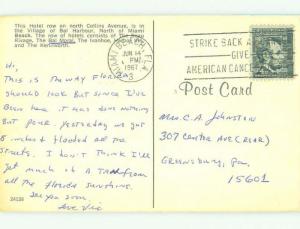 This Hotel row on north Collins Avenue, is in
the Village of Bal Harbour, North of Miami
Beach. The row of hotels consists of The Beau
Rivage, The Bal Moral, The Ivanhoe,
and The Kenilworth.
MIAMI BEACH, FLA.
JUN 14
PM
1967
STRIKE BACK A
GIVE
AMERICAN CANCE
Post Card
Hi,
This is the way Florida
should look but since I've
been here it was done nothing
but pour. Yesterday we got
8 inches & flooded all the
streets. I don't think I'll
get much of a tan from
all the Florida sunshine.
See you soon.
Mrs. C. A. Johnston
307 Center Ave (Rear)
Greensburg, Pa.
15601
24126